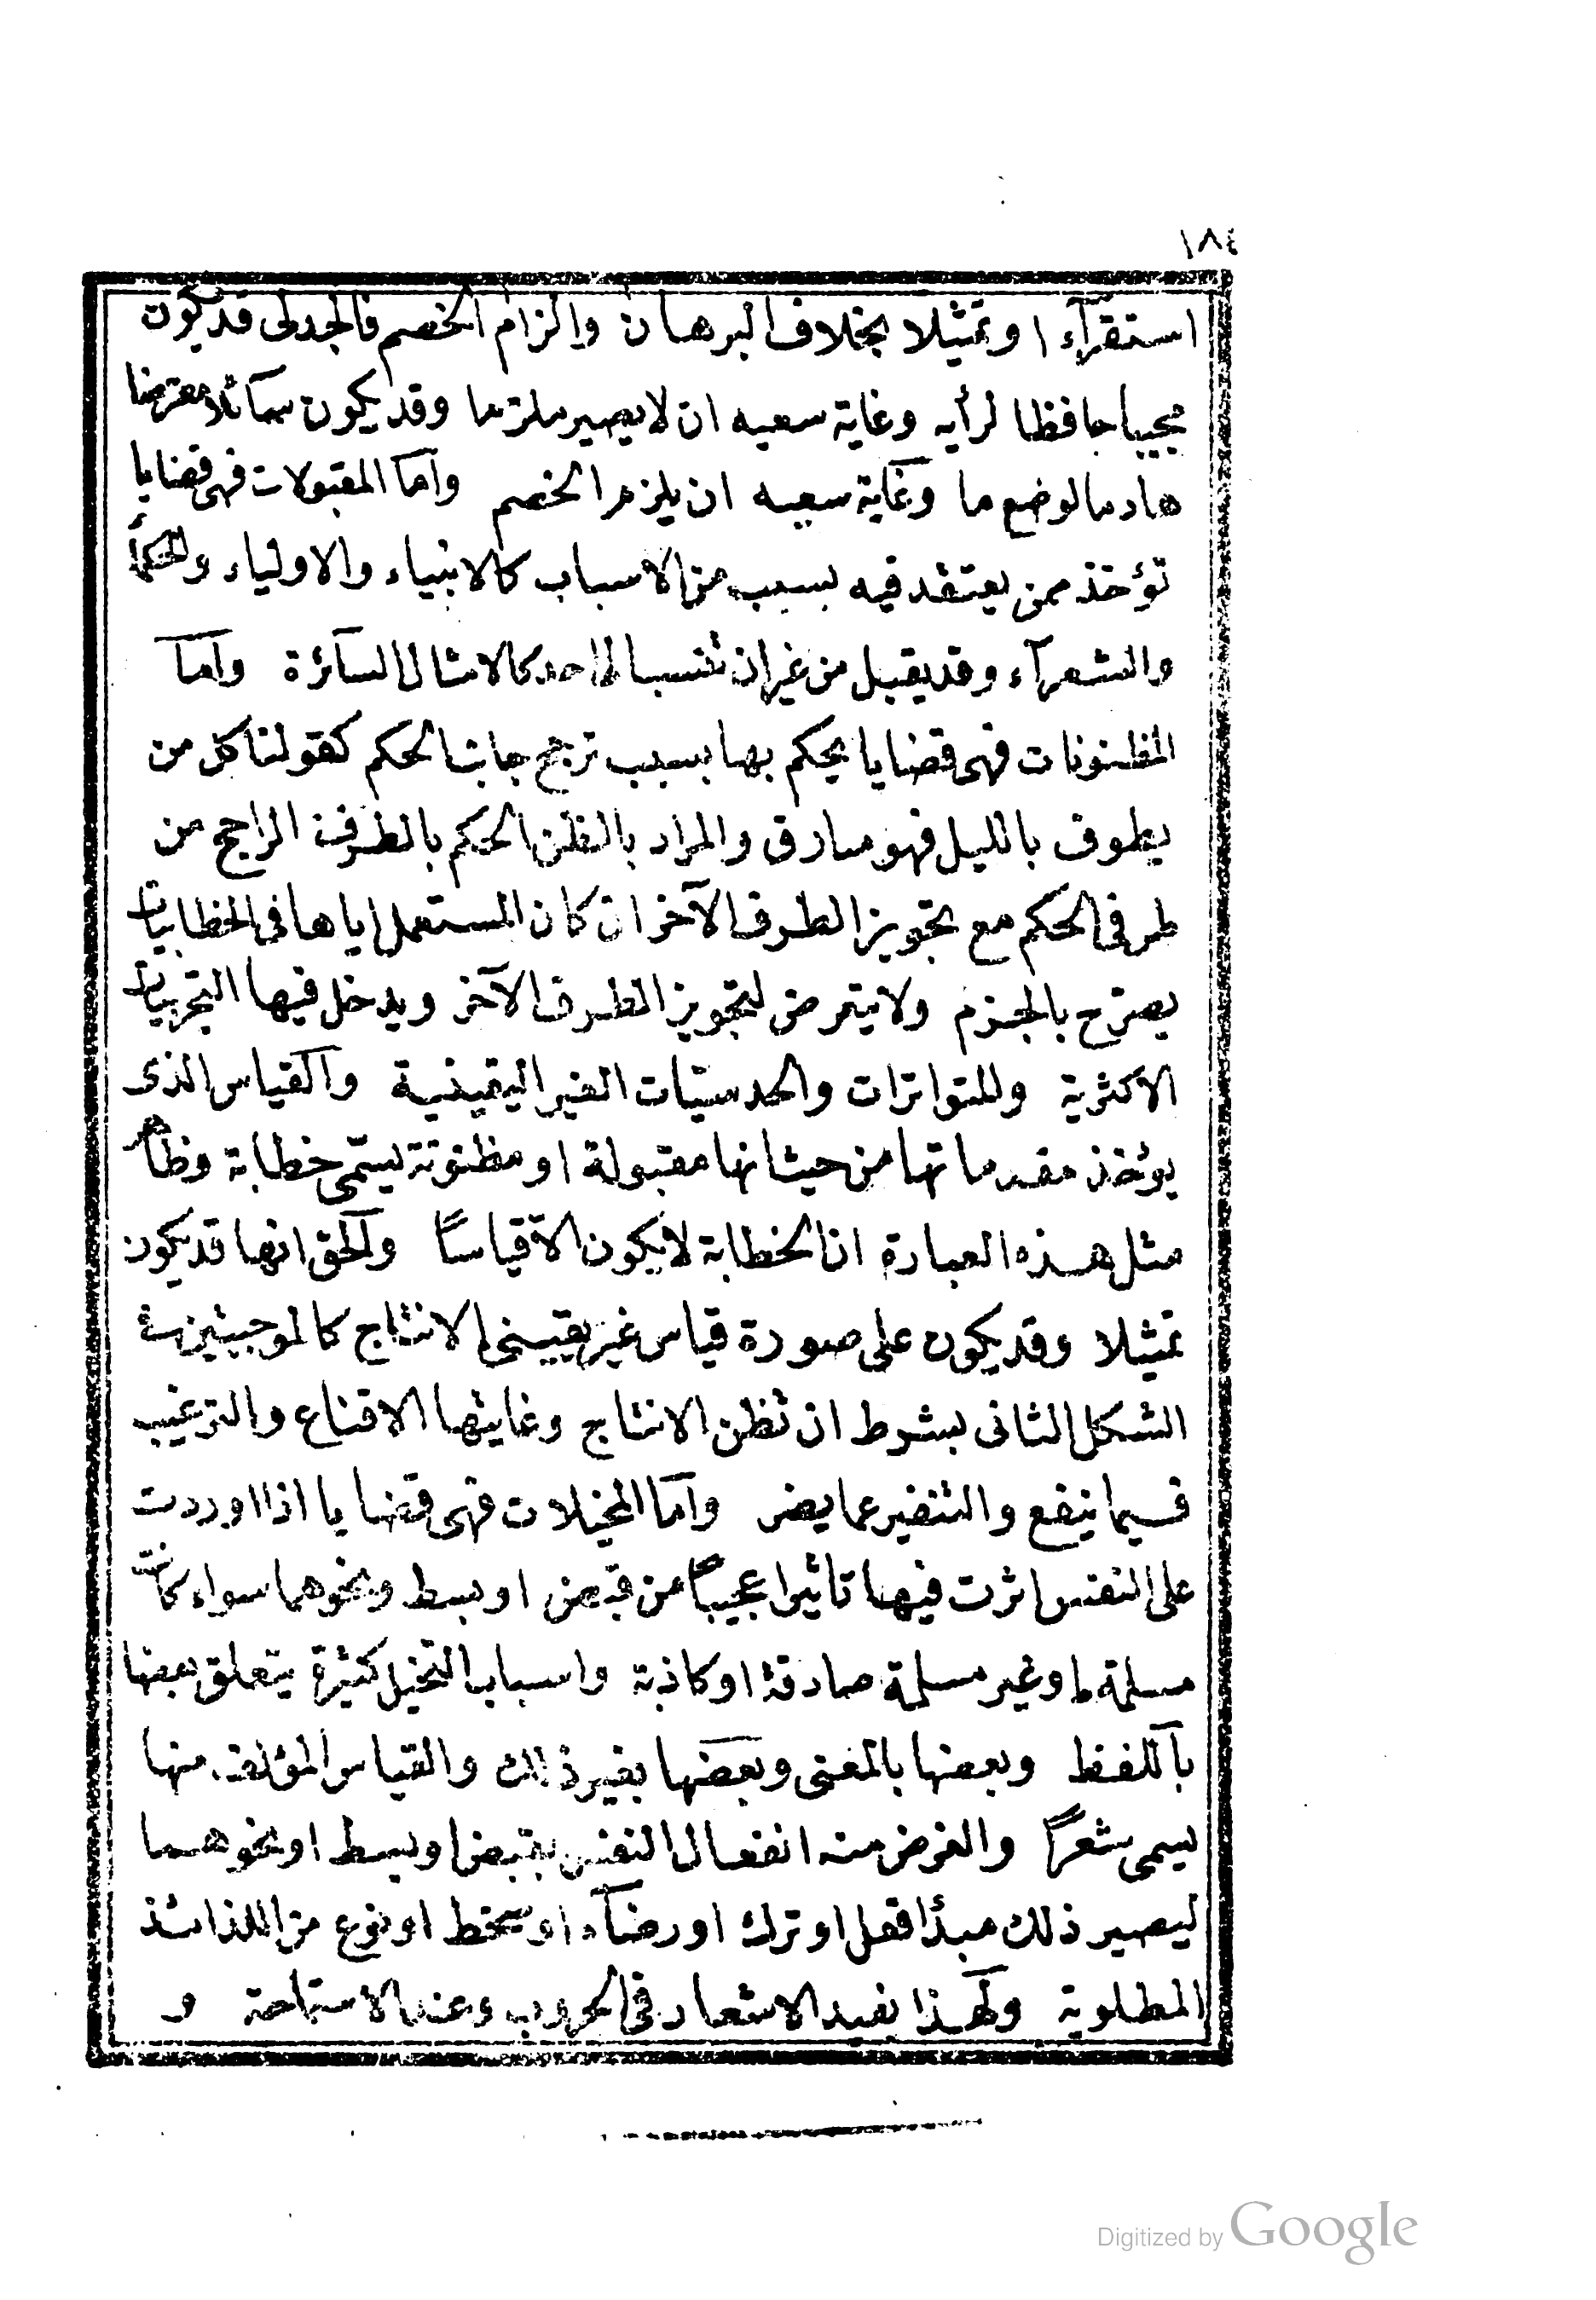 ١٨٤
استقرآء او تمثيلا بخلاف البرهان والزام الخصم فالجدلى قد يكون
مجيبا حافظا لرأيه وغاية سعيه ان لا يصير ملزما وقد يكون سآئلا معترضا
هادما لوضع ما وغاية سعيه ان يلزم الخصم وامّا المقبولات فهى قضايا
تؤخذ ممن يعتقد فيه بسبب من الاسباب كالانبياء والاولياء والحكمأ
والشعرآء وقد يقبل من غير ان تنسب الى احد كالامثال السآئرة وامّا
المظنونات فهى قضايا يحكم بها بسبب ترجح جانب الحكم كقولنا كل من
يطوف بالليل فهو سارق والمراد بالظن الحكم بالطرف الراجح من
طرفى الحكم مع تجويز الطرف الآخر ان كان المستعمل اياها فى الخطابيات
يصرّح بالجزم ولا يتعرض لتجويز الطرف الآخر ويدخل فيها التجربيات
الاكثرية والمتواترات والحدسيّات الغير اليقينية والقياس الذى
يؤخذ مقدماتها من حيث انها مقبولة او مظنونة يسمّى خطابة وظاهر
مثل هذه العبارة ان الخطابة لا يكون الّا قياسًا والحق انها قد يكون
تمثيلا وقد يكون على صورة قياس غير يقينى الانتاج كالموجبتين فى
الشكل الثانى بشرط ان تظن الانتاج وغايتها الاقناع والترغيب
فيما ينفع والتنفير عما يضر وامّا المخيلات فهى قضايا اذا اوردت
على النفس اثرت فيها تاثيرا عجيبًا من قبض او بسط ونحوهما سواء كانت
مسلمة او غير مسلمة صادقة او كاذبة واسباب التخيل كثيرة يتعلق بعضها
باللفظ وبعضها بالمعنى وبعضها بغير ذلك والقياس المؤلف منها
يسمى شعرًا والغرض منه انفعال النفس بقبض او بسط او نحوهما
ليصير ذلك مبدأ فعل او ترك او رضآء او سخط او نوع من اللذائذ
المطلوبة ولهذا يفيد الاشعار فى الحروب وعند الاستماحة و
Digitized by Google